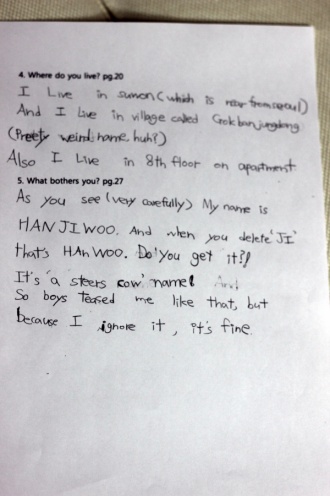 4. Where do you live? pg.20
I Live in suwon (which is near from seoul)
And I Live in village called Gokbanjungdong
(Preety weird name. huh?)
Also I Live in 8th floor on apartment
5. What bothers you? pg.27
As you see (very carefully) My name is
HAN JI WOO. And when you delete 'JI'
that's HAn WOO. Do you get it?!
It's 'a steers cow' name!
So boys teased me like that, but
because I ignore it, it's fine.